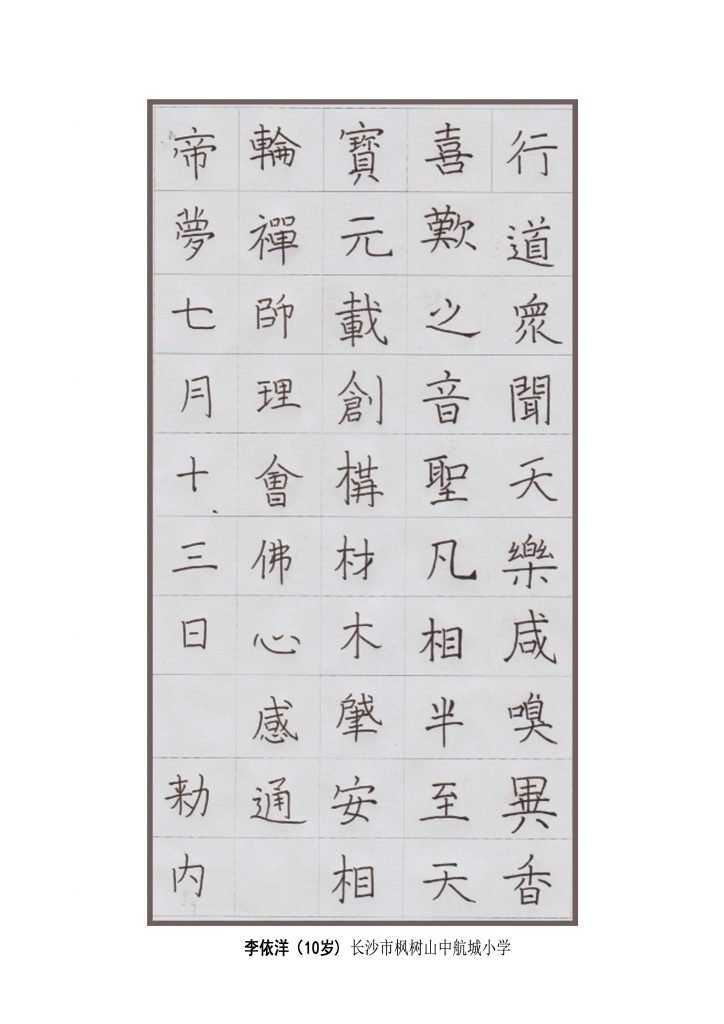 行道眾聞天樂咸嗅異香
喜歎之音聖凡相半至天
寶元載創構材木肇安相
輪禪師理會佛心感通
帝夢七月十三日 勑内
李依洋（10岁）长沙市枫树山中航城小学